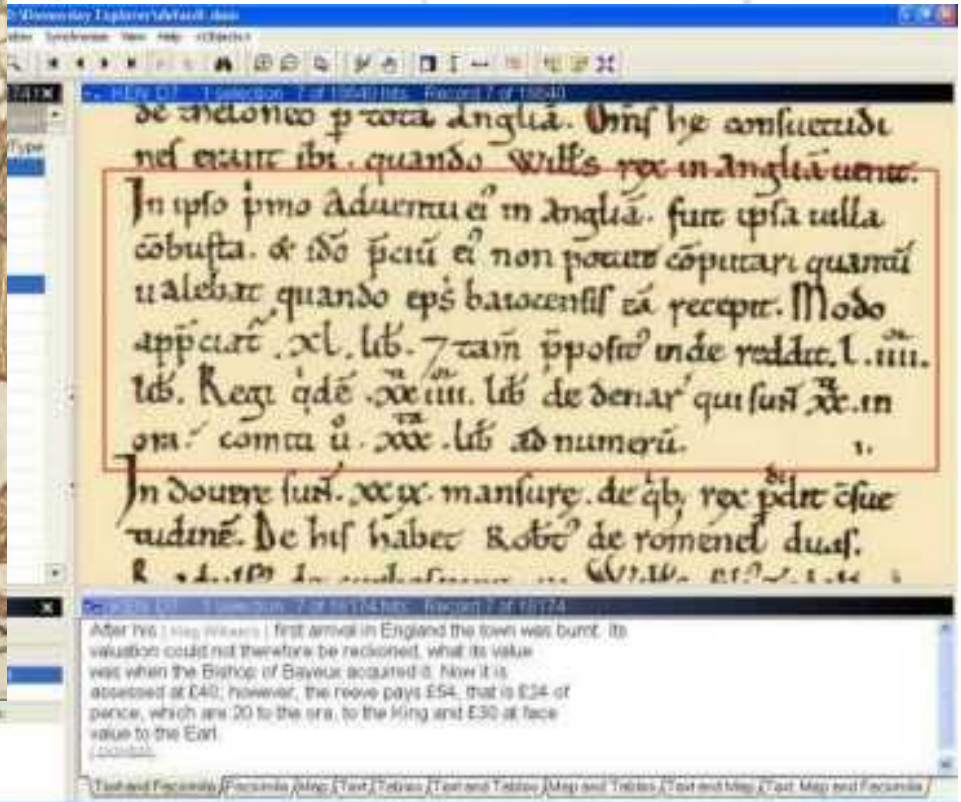 Domesday Explorer\default.dmn
Synchronise View Help <Objects>
KEN, D7 1 selection 7 of 18640 hits Record 7 of 18640
Type
de theloneo p tota Anglia. Oms he consuetudi
nes erant ibi. quando Wills rex in Anglia uenit.
In ipso pmo aduentu ei in Anglia. fuit ipsa uilla
cōbusta. & ido pciū ei non potuit cōputari quantū
ualebat quando eps baiocensis eā recepit. Modo
appciat. xl. lib. 7 tam pposit inde reddit. l. iiii.
lib. Regi qdē xx iiii. lib de denar qui sunt xx. in
ora. comiti u. xxx. lib ad numerū.
In douere sunt. xx ix. mansure. de qb, rex pdit csue
tudinē. De his habet Robt de romenel duas.
KEN, D7 1 selection 7 of 18174 hits Record 7 of 18174
After his [King William's] first arrival in England the town was burnt. Its
valuation could not therefore be reckoned, what its value
was when the Bishop of Bayeux acquired it. Now it is
assessed at £40; however, the reeve pays £54, that is £24 of
pence, which are 20 to the ora, to the King and £30 at face
value to the Earl.
Text and Facsimile Facsimile Map Text Tables Text and Tables Map and Tables Text and Map Text, Map and Facsimile